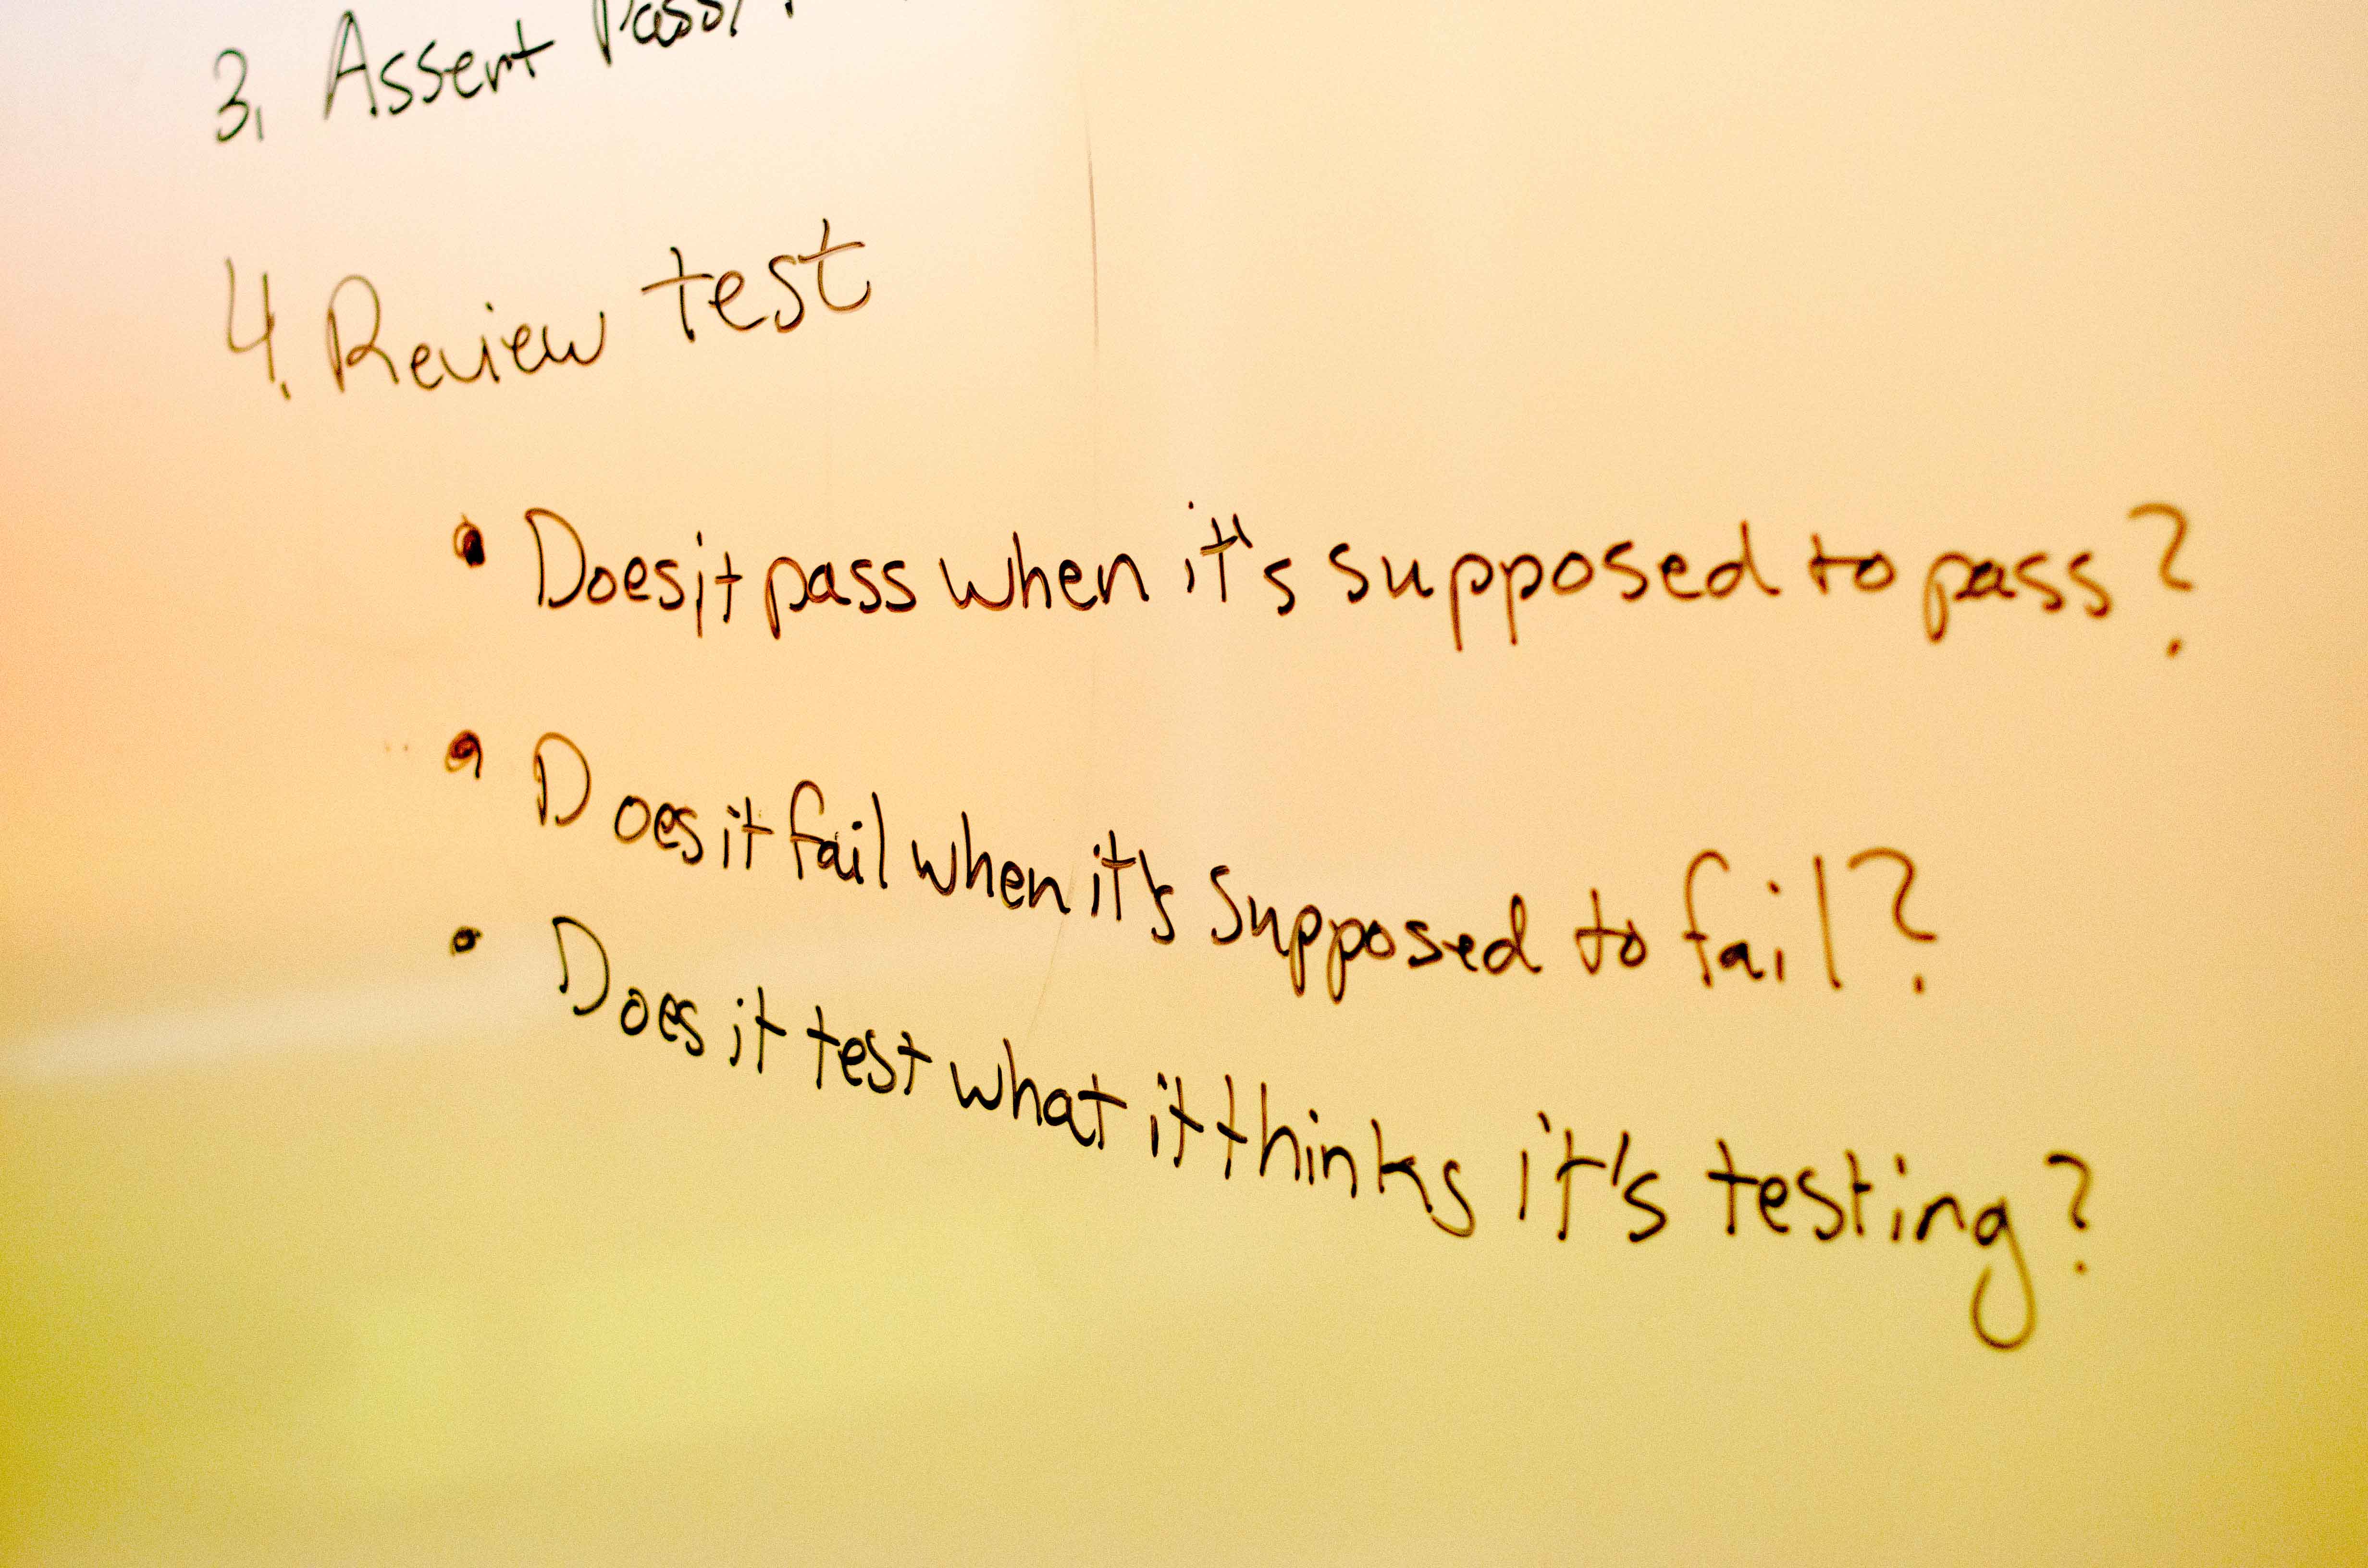 3. Assert Pass/
4. Review test
• Does it pass when it's supposed to pass?
• Does it fail when it's supposed to fail?
• Does it test what it thinks it's testing?